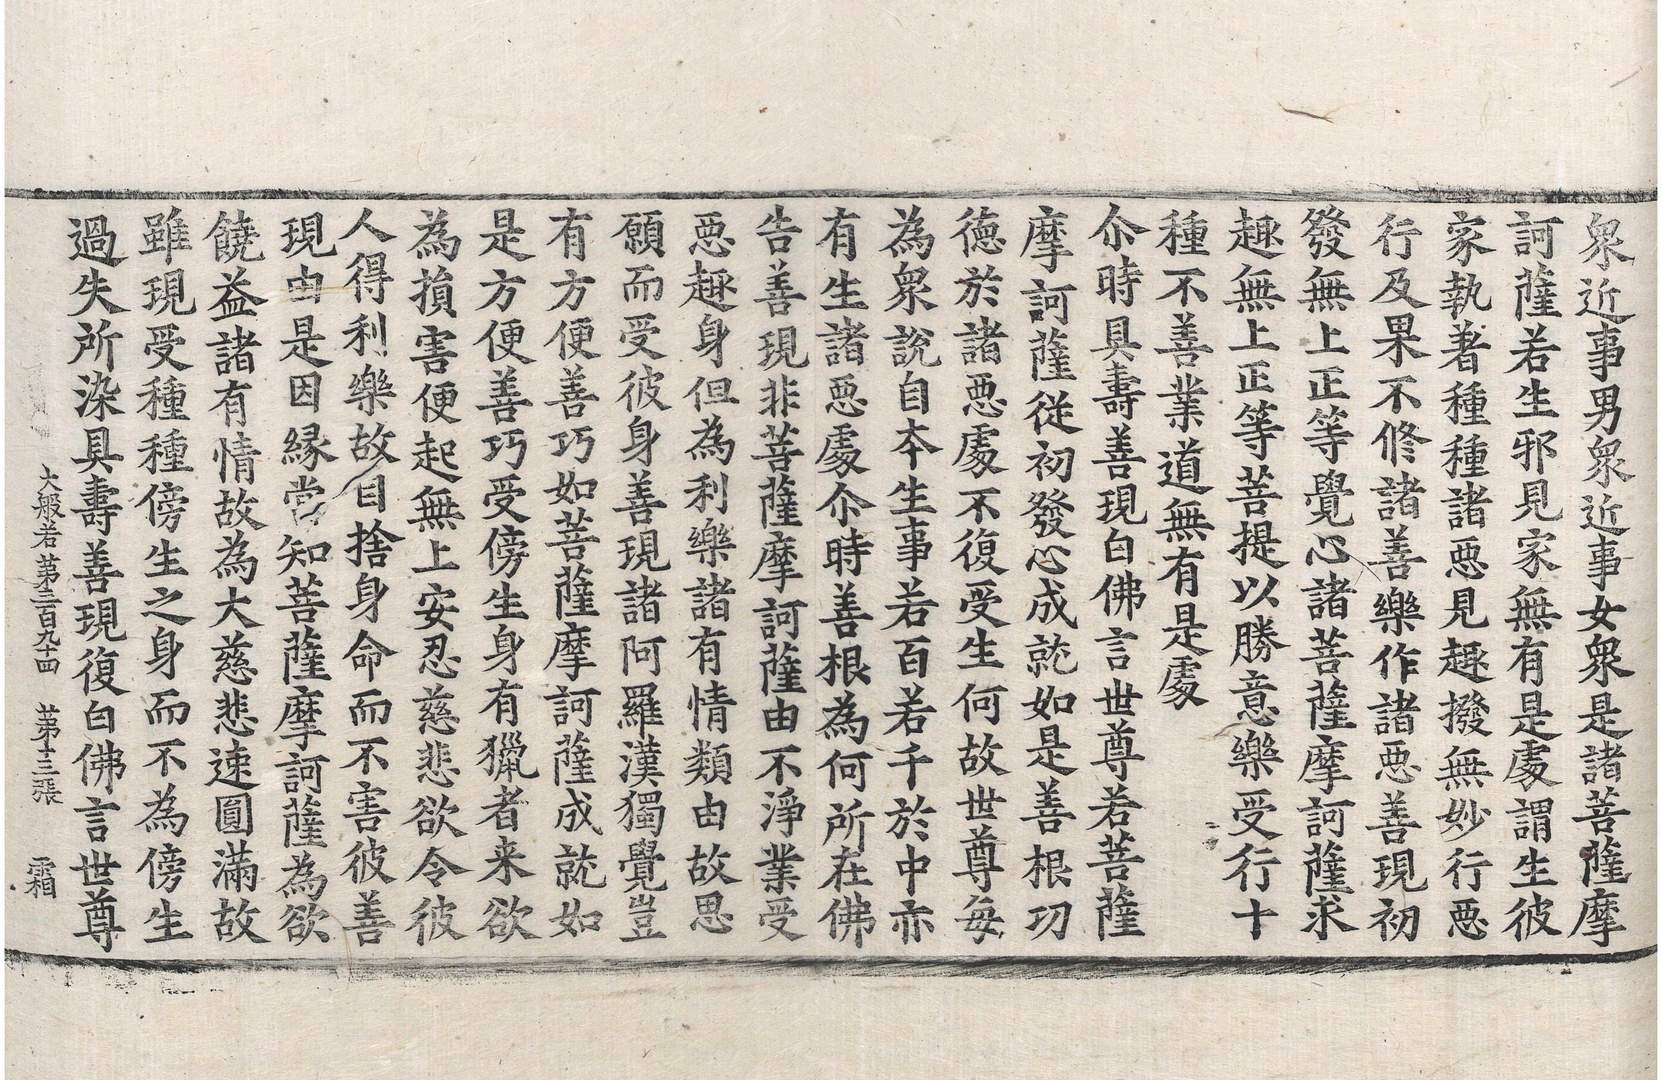 衆近事男衆近事女衆是諸菩薩摩
訶薩若生邪見家無有是處謂生彼
家執著種種諸惡見趣撥無妙行惡
行及果不修諸善樂作諸惡善現初
發無上正等覺心諸菩薩摩訶薩求
趣無上正等菩提以勝意樂受行十
種不善業道無有是處
尒時具壽善現白佛言世尊若菩薩
摩訶薩從初發心成就如是善根功
德於諸惡處不復受生何故世尊每
為衆說自本生事若百若千於中亦
有生諸惡處尒時善根為何所在佛
告善現非菩薩摩訶薩由不淨業受
惡趣身但為利樂諸有情類由故思
願而受彼身善現諸阿羅漢獨覺豈
有方便善巧如菩薩摩訶薩成就如
是方便善巧受傍生身有獵者来欲
為損害便起無上安忍慈悲欲令彼
人得利樂故自捨身命而不害彼善
現由是因緣當知菩薩摩訶薩為欲
饒益諸有情故為大慈悲速圓滿故
雖現受種種傍生之身而不為傍生
過失所染具壽善現復白佛言世尊
大般若第三百九十四 第十三張 霜